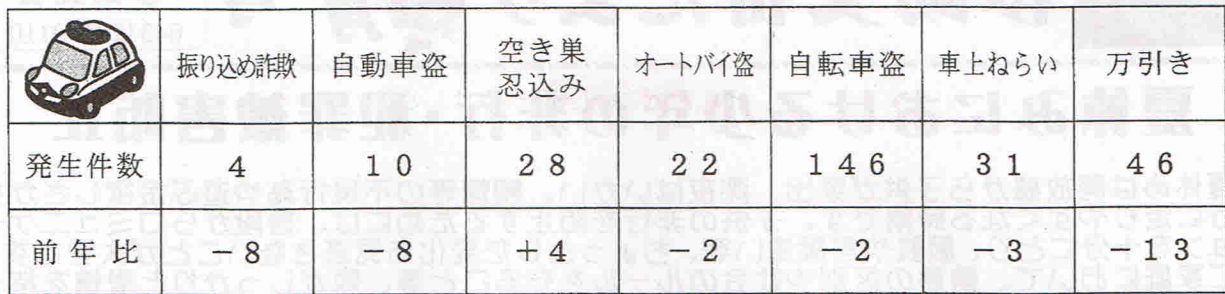 振り込め詐欺 自動車盗 空き巣 忍込み オートバイ盗 自転車盗 車上ねらい 万引き
発生件数 4 10 28 22 146 31 46
前年比 -8 -8 +4 -2 -2 -3 -13